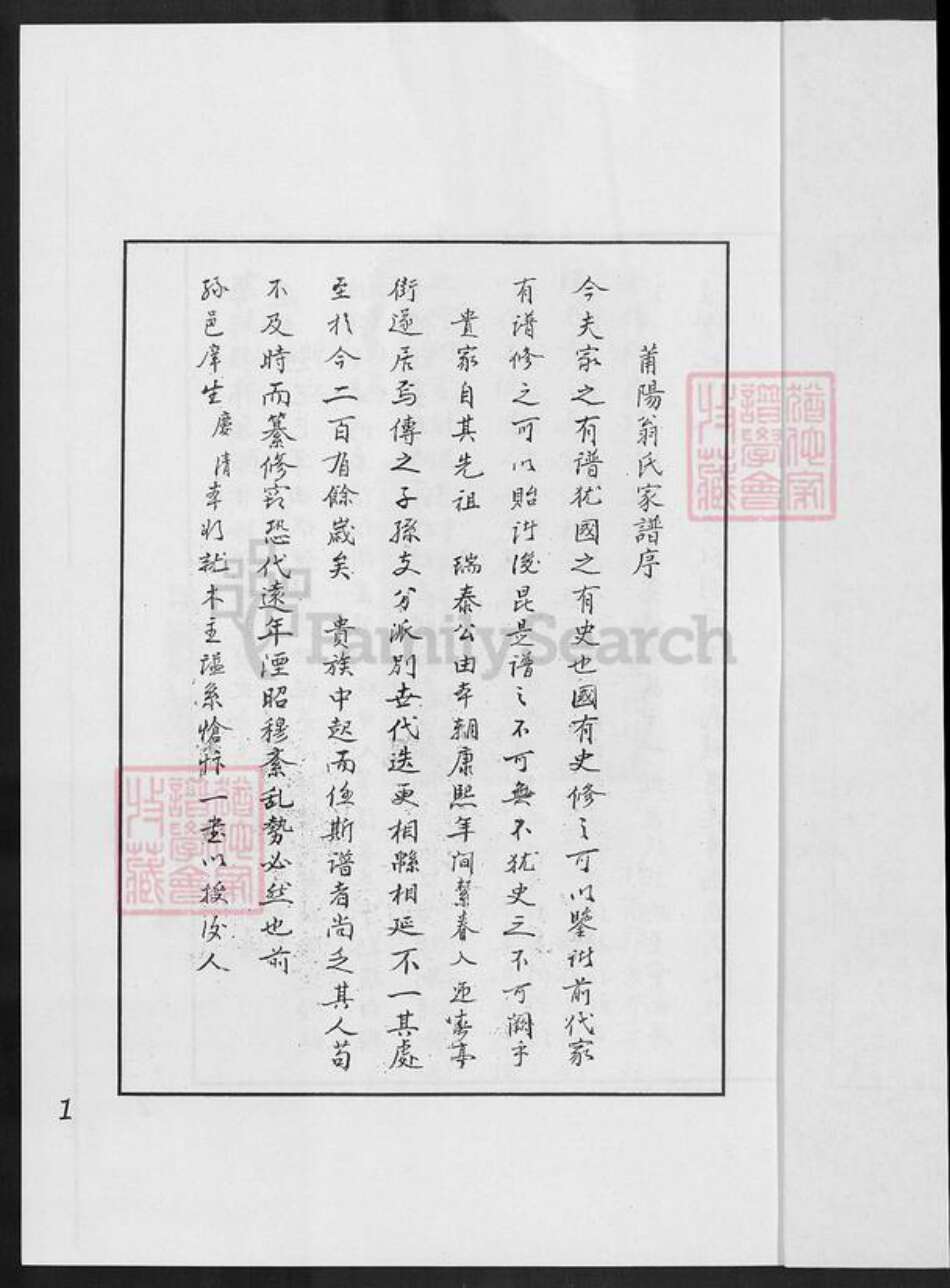 莆陽翁氏家譜序
今夫家之有譜犹國之有史也國有史修之可以鑒諸前代家
有譜修之可以貽諸後昆是譜之不可無不犹史之不可闕乎
貴家自其先祖 瑞泰公由本朝康熙年间絜眷入延
街遂居焉傳之子孫支分派別世代迭更相緜相延不一其處
至於今二百有餘嵗矣 貴族中起而任斯譜者尚乏其人苟
不及時而纂修窃恐代遠年湮昭穆紊乱勢必然也前
孫邑庠生慶 清率將就木主 系 一 以授後人
1
猶他家譜學會收藏
猶他家譜學會收藏
FamilySearch